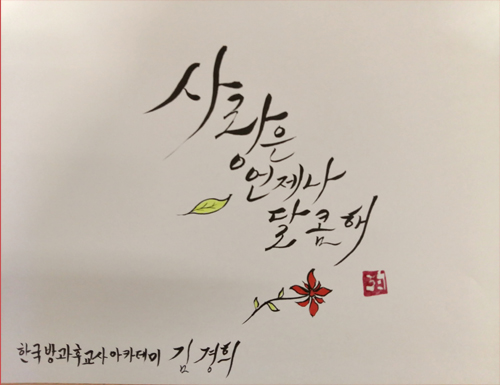 사랑은
언제나
달콤해
한국방과후교사아카데미 김경희